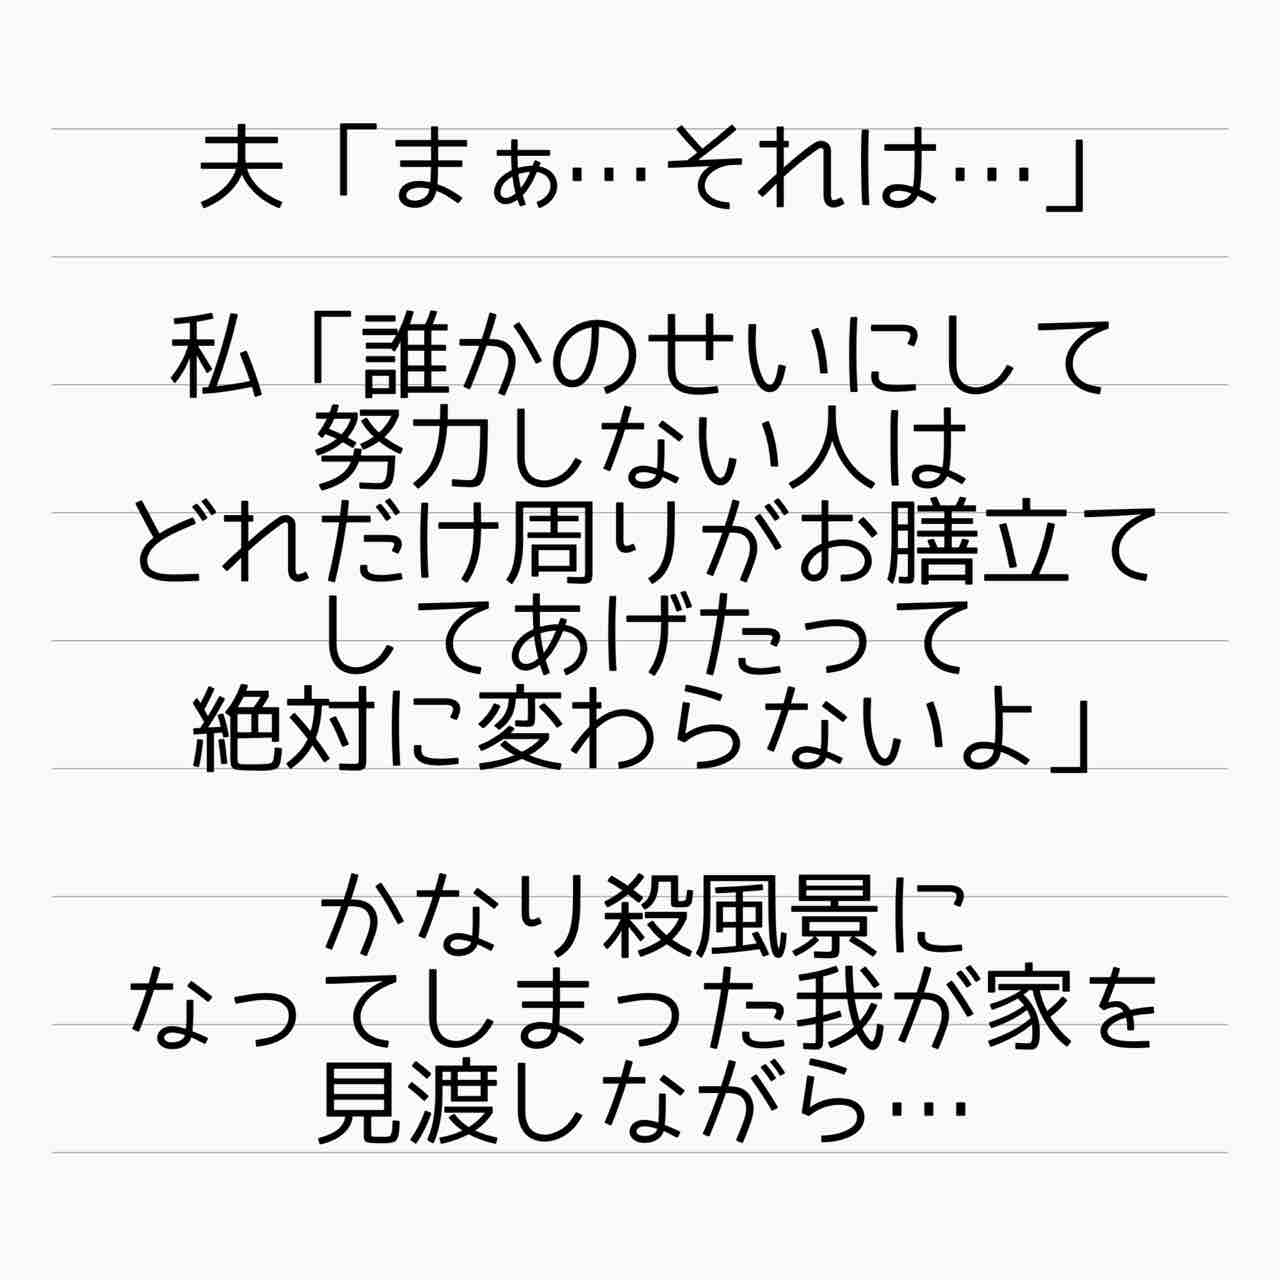 夫「まぁ…それは…」
私「誰かのせいにして
努力しない人は
どれだけ周りがお膳立て
してあげたって
絶対に変わらないよ」
かなり殺風景に
なってしまった我が家を
見渡しながら…